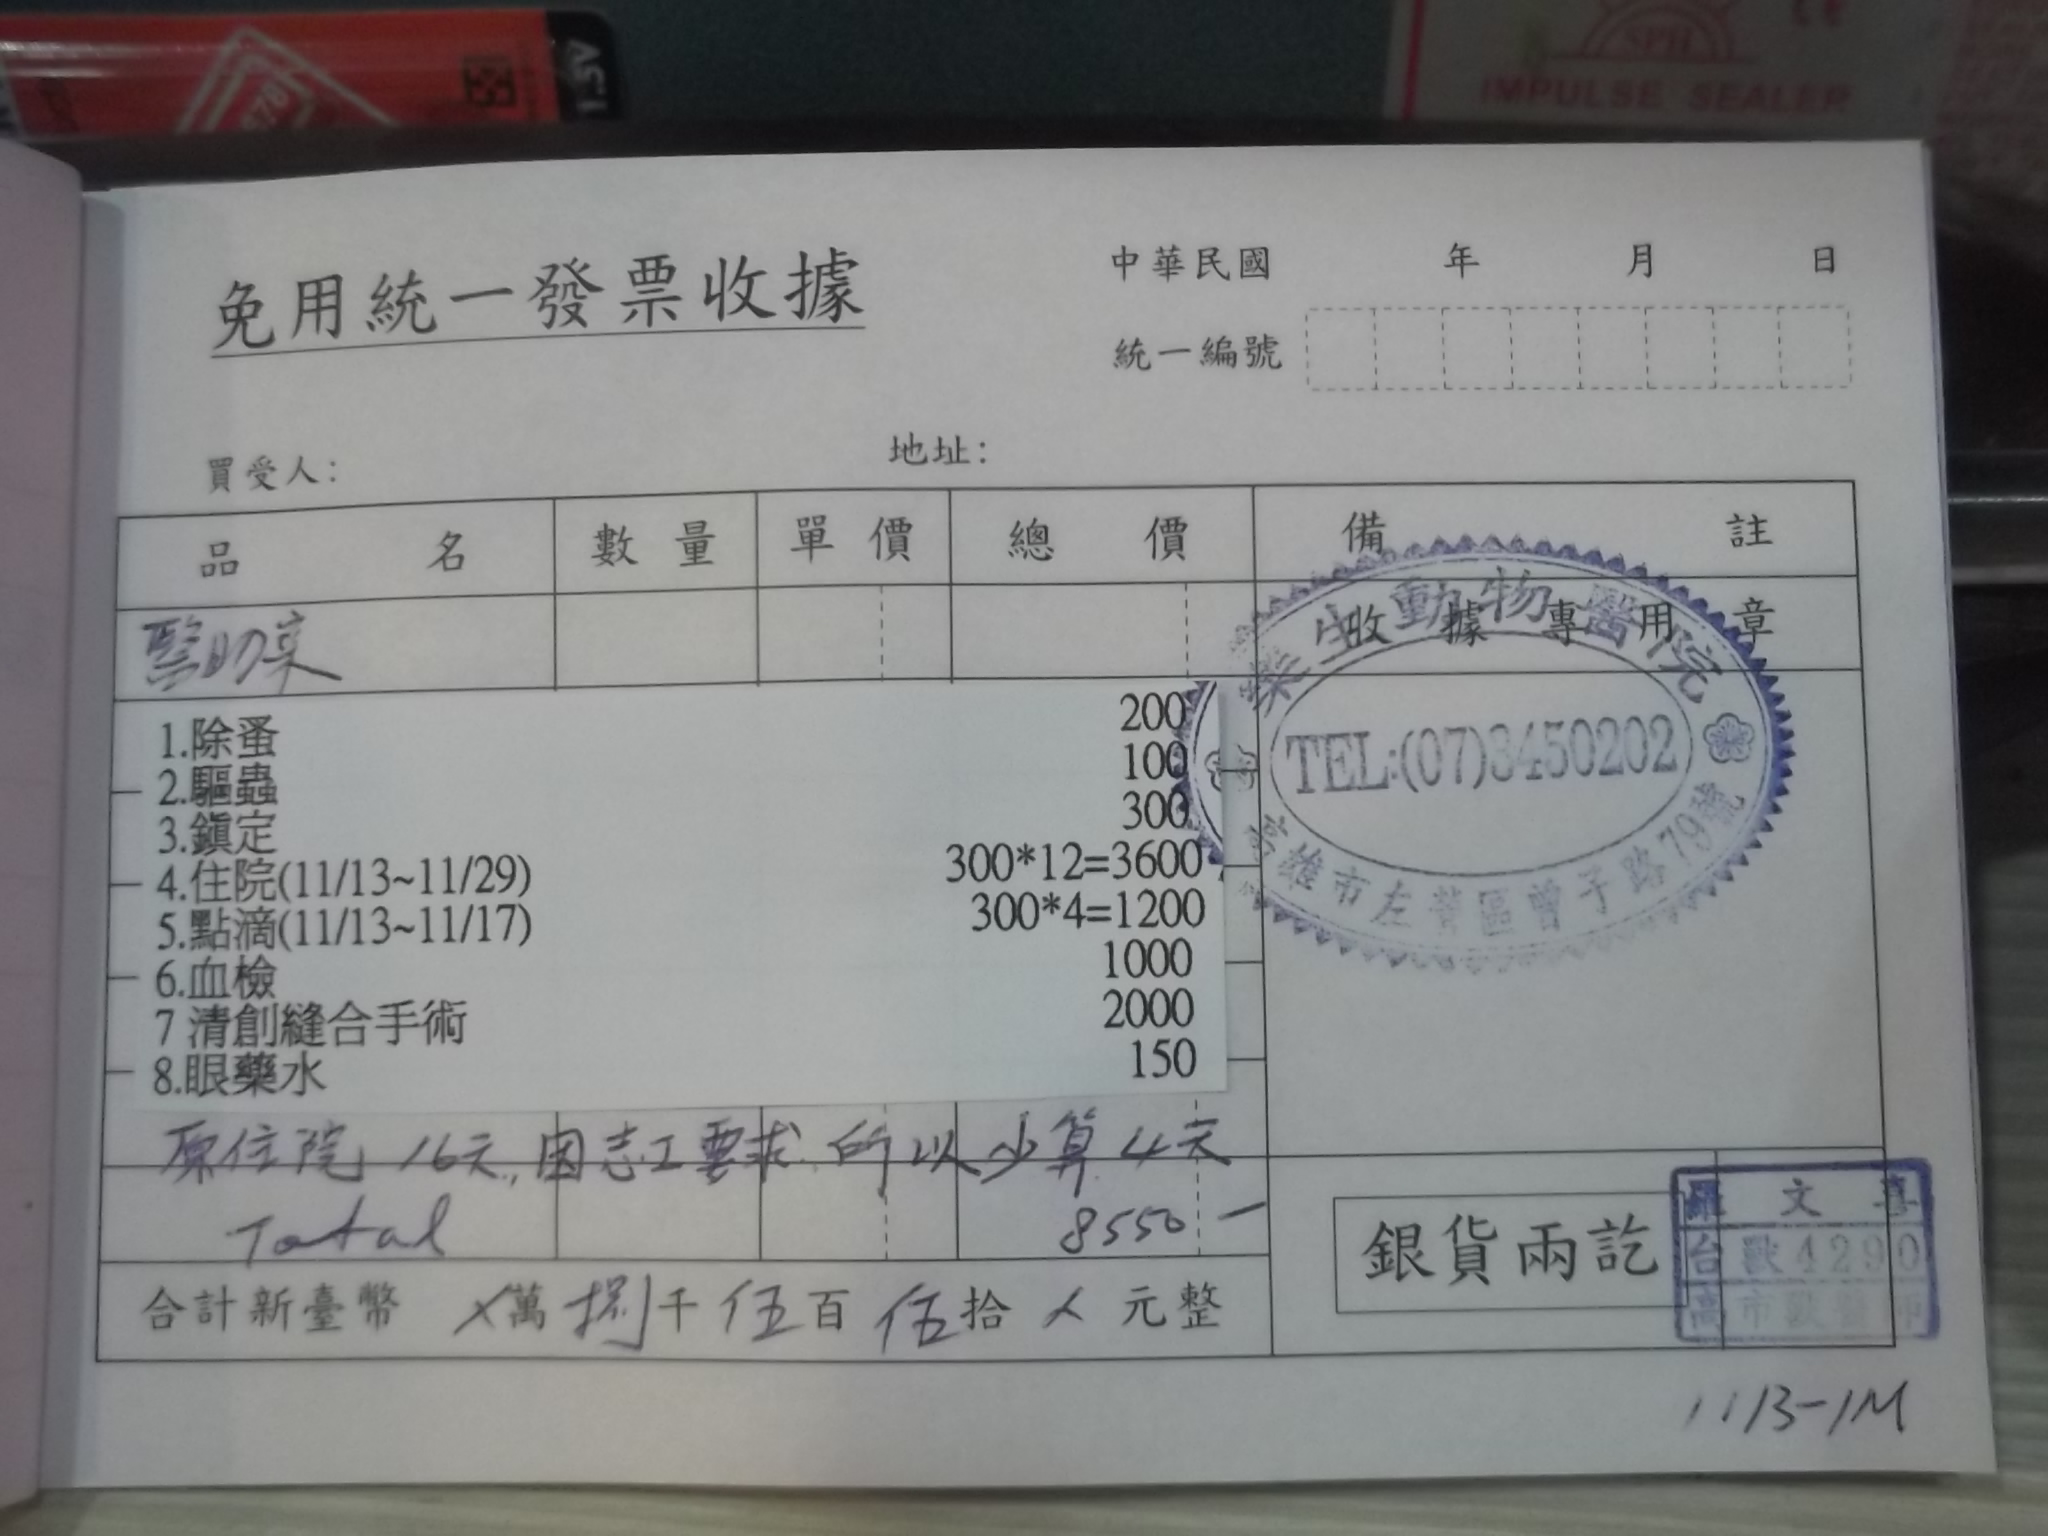 SPH
IMPULSE SEALER
免用統一發票收據
中華民國 年 月 日
統一編號
買受人:
地址:
品名 數量 單價 總價 備註
收據專用章
生動物醫院
TEL:(07)3450202
高雄市左營區曾子路79號
醫助
1.除蚤 200
2.驅蟲 100
3.鎮定 300
4.住院(11/13~11/29) 300*12=3600
5.點滴(11/13~11/17) 300*4=1200
6.血檢 1000
7 清創縫合手術 2000
8.眼藥水 150
原住院 16天,因志工要求.所以少算4天
Total 8550-
合計新臺幣 X萬捌千伍百伍拾 元整
銀貨兩訖
羅文
台獸4290
高市獸醫師
1113-1M